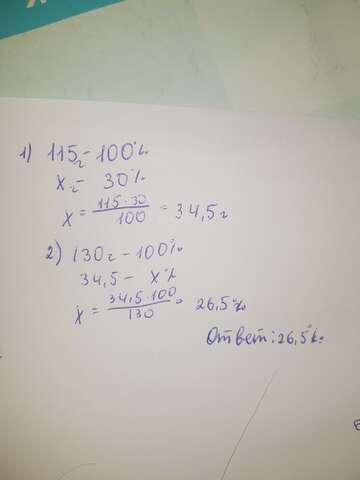 1) 115г - 100%
x г - 30%
x = 115·30 / 100 = 34,5 г
2) 130 г - 100%
34,5 - x %
x = 34,5·100 / 130 = 26,5 %
Ответ: 26,5 %.